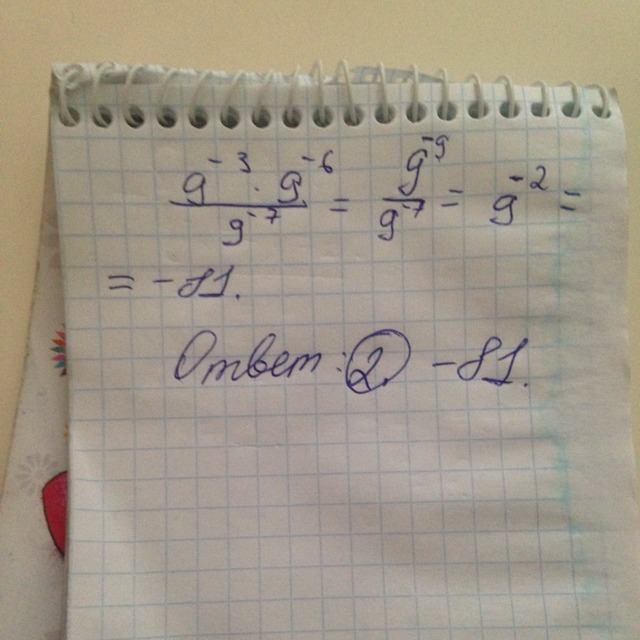 9⁻³ · 9⁻⁶ / 9⁻⁷ = 9⁻⁹ / 9⁻⁷ = 9⁻² =
= -81.
Ответ: 2. -81.